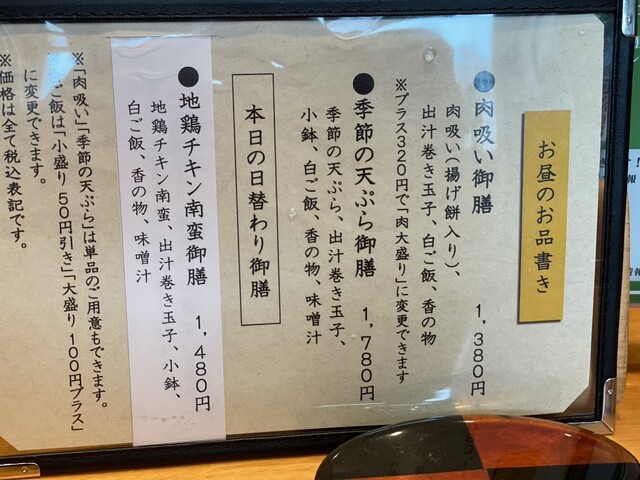 お昼のお品書き
●肉吸い御膳 1,380円
肉吸い(揚げ餅入り)、
出汁巻き玉子、白ご飯、香の物
※プラス320円で「肉大盛り」に変更できます
●季節の天ぷら御膳 1,780円
季節の天ぷら、出汁巻き玉子、
小鉢、白ご飯、香の物、味噌汁
本日の日替わり御膳
●地鶏チキン南蛮御膳 1,480円
地鶏チキン南蛮、出汁巻き玉子、小鉢、
白ご飯、香の物、味噌汁
※「肉吸い」「季節の天ぷら」は単品のご用意もできます。
ご飯は「小盛り50円引き」「大盛り100円プラス」
に変更できます。
※価格は全て税込表記です。